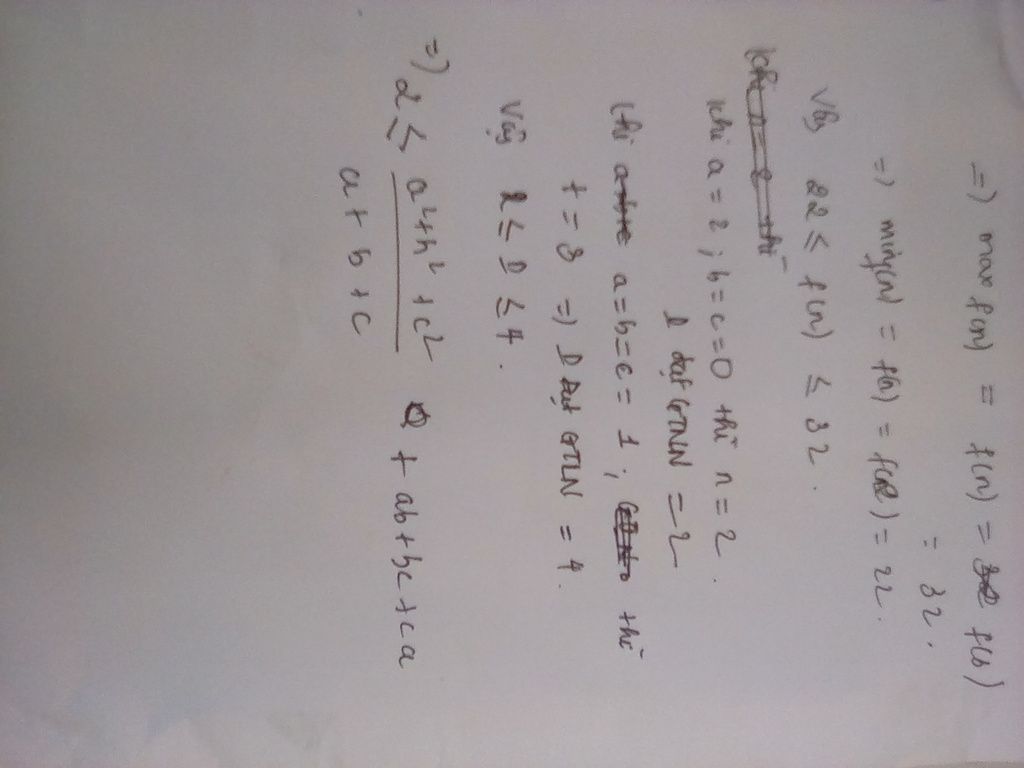 =) max f(n) = f(n) = f(b)
= 32.
=) min f(n) = f(a) = f(2) = 22.
Vậy 22 ≤ f(n) ≤ 32.
Khi a = 2 ; b = c = 0 thì n = 2.
D đạt GTNN = 2
Khi a = b = c = 1 ; thì
t = 3 =) D đạt GTLN = 4.
Vậy 2 ≤ D ≤ 4.
=) 2 ≤ (a² + b² + c²)/(a + b + c) + ab + bc + ca